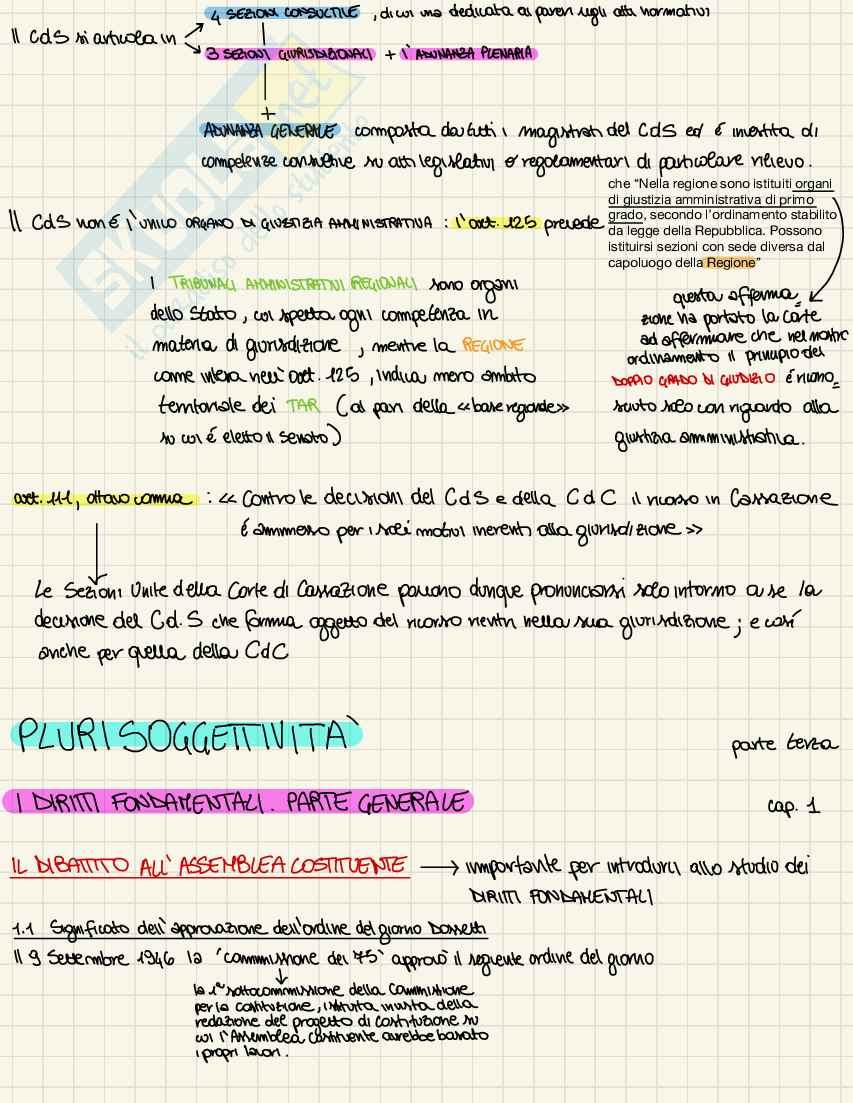 4 SEZIONI CONSULTIVE, di cui una dedicata ai pareri sugli atti normativi
Il CdS si articola in
3 SEZIONI GIURISDIZIONALI + l'ADUNANZA PLENARIA
+
ADUNANZA GENERALE composta da tutti i magistrati del CdS ed è investita di
competenze consultive su atti legislativi o regolamentari di particolare rilievo.
Il CdS non è l'unico ORGANO DI GIUSTIZIA AMMINISTRATIVA : l'art. 125 prevede
che “Nella regione sono istituiti organi
di giustizia amministrativa di primo
grado, secondo l'ordinamento stabilito
da legge della Repubblica. Possono
istituirsi sezioni con sede diversa dal
capoluogo della Regione”
I TRIBUNALI AMMINISTRATIVI REGIONALI sono organi
dello Stato, cui spetta ogni competenza in
materia di giurisdizione, mentre la REGIONE
come intesa nell'art. 125, indica mero ambito
territoriale dei TAR (al pari della «base regionale»
su cui è eletto il Senato)
questa afferma=
zione ha portato la Corte
ad affermare che nel nostro
ordinamento il principio del
DOPPIO GRADO DI GIUDIZIO è ricono=
sciuto solo con riguardo alla
giustizia amministrativa.
art. 111, ottavo comma : « Contro le decisioni del CdS e della CdC il ricorso in Cassazione
è ammesso per i soli motivi inerenti alla giurisdizione »
Le Sezioni Unite della Corte di Cassazione possono dunque pronunciarsi solo intorno a se la
decisione del Cd.S che forma oggetto del ricorso rientri nella sua giurisdizione; e così
anche per quella della CdC
PLURISOGGETTIVITÀ
parte terza
I DIRITTI FONDAMENTALI. PARTE GENERALE
cap. 1
IL DIBATTITO ALL'ASSEMBLEA COSTITUENTE → importante per introdurci allo studio dei
DIRITTI FONDAMENTALI
1.1 Significato dell'approvazione dell'ordine del giorno Dossetti
Il 9 Settembre 1946 la 'commissione dei 75' approvò il seguente ordine del giorno
la 1ª sottocommissione della Commissione
per la costituzione, istituita in vista della
redazione del progetto di costituzione su
cui l'Assemblea Costituente avrebbe basato
i propri lavori.
SKUOLA.net
il paradiso dello studente